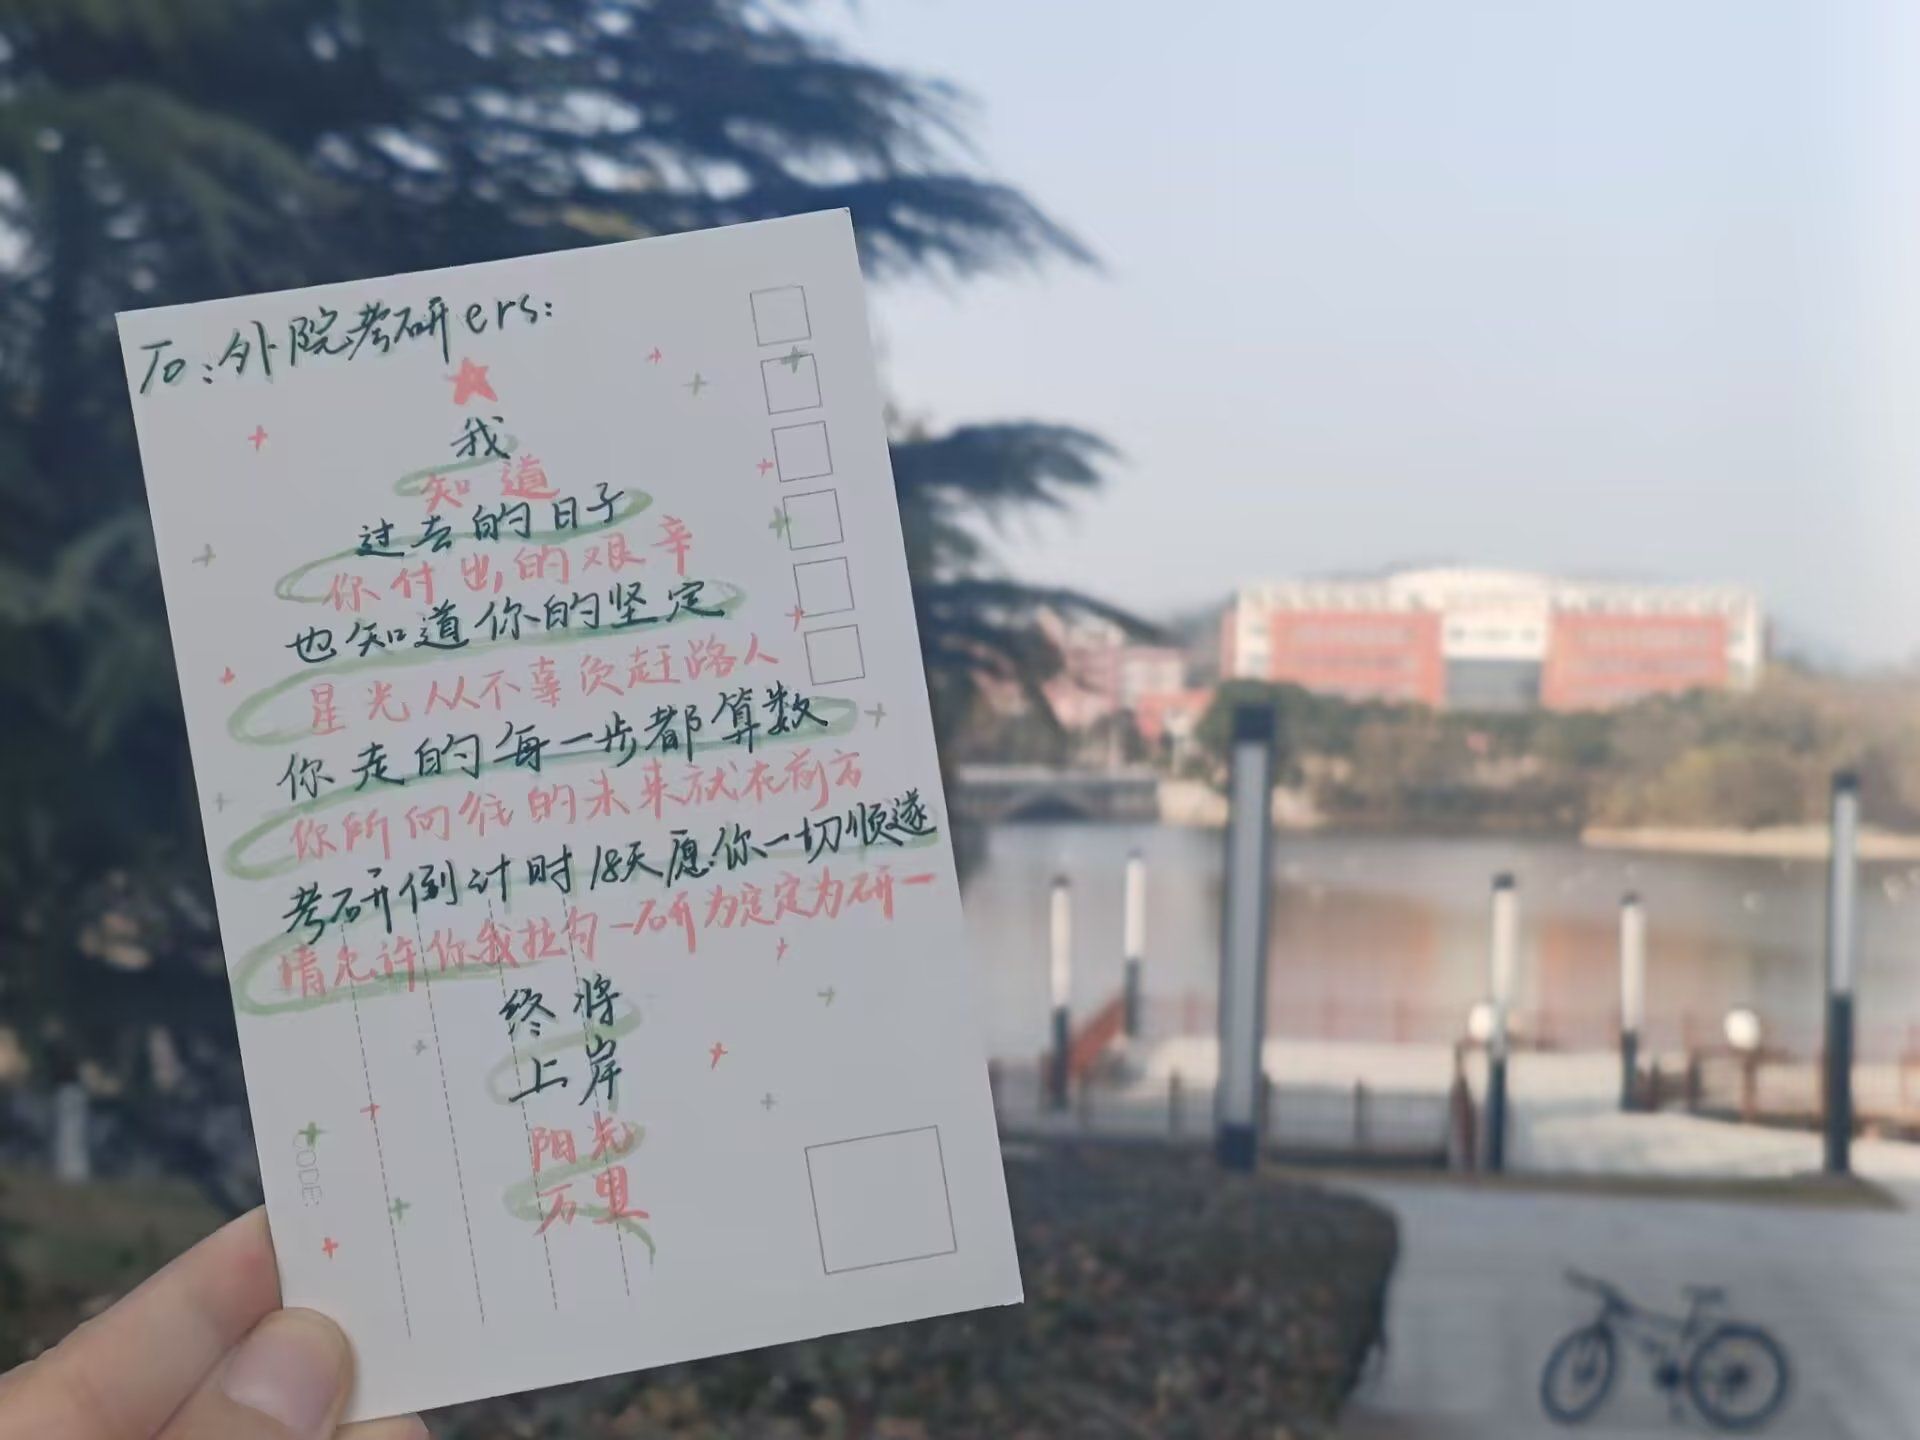 To:外院考研ers:
我
知道
过去的日子
你付出的艰辛
也知道你的坚定
星光从不辜负赶路人
你走的每一步都算数
你所向往的未来就在前方
考研倒计时18天愿你一切顺遂
请允许你我拉勾一研为定定为研一
终将
上岸
阳光
万里
CODE: